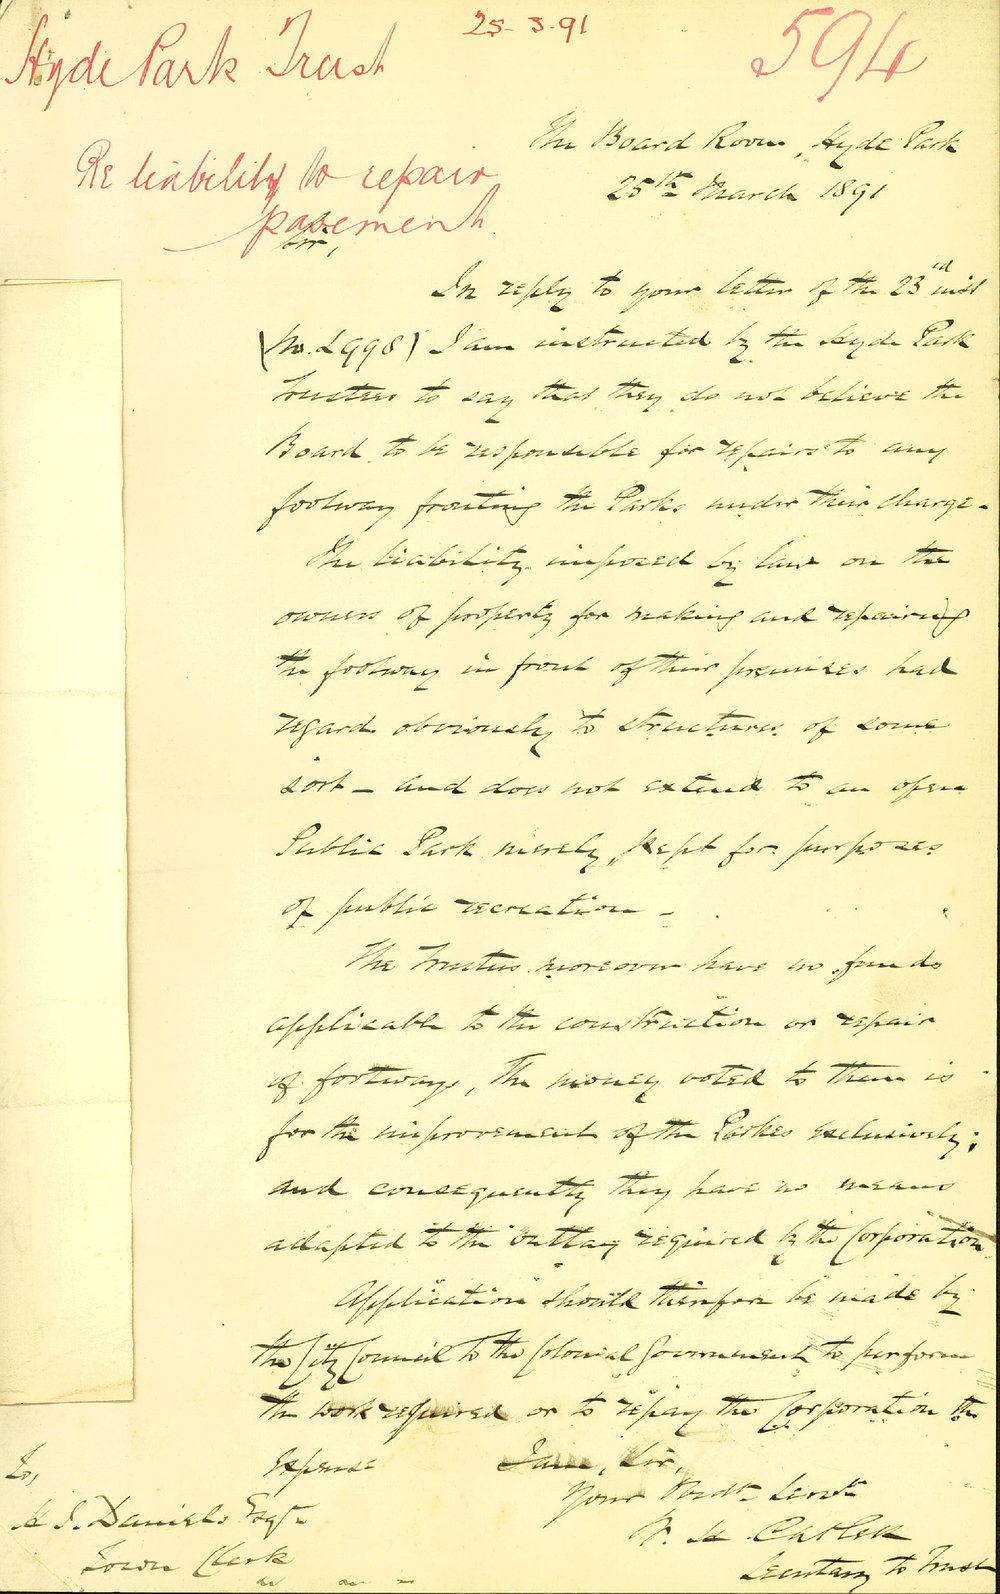 25-3-91
594
Hyde Park Trust
Re liability to repair
pavement.
The Board Room, Hyde Park
25th March 1891
Sir,
In reply to your letter of the 23rd inst
(No. 2998) I am instructed by the Hyde Park
Trustees to say that they do not believe the
Board to be responsible for repairs to any
footway fronting the Parks under their charge-
The liability imposed by law on the
owners of property for making and repairing
the footway in front of their premises had
regard obviously to structures of some
sort - and does not extend to an open
Public Park merely kept for purposes
of public recreation -
The Trustees moreover have no funds
applicable to the construction or repair
of footways, The money voted to them is
for the improvement of the Parks exclusively;
and consequently they have no means
adapted to the outlay required by the Corporation.
Application should therefore be made by
the City Council to the Colonial Government to perform
the work required or to repay the Corporation the
expense
I am, Sir,
Your Obedt Servt
Secretary to Trust
To,
H J. Daniels Esqre
Town Clerk